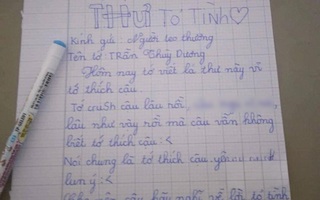 THƯ TỎ TÌNH
Kính gửi : Người teo thương
Tên tớ TRần Thuỳ Dương
Hôm nay tớ viết lá thư này vì
tớ thích cậu.
Tớ cruSh cậu lâu rồi,
lâu như vậy rồi mà cậu vẫn không
biết tớ thích cậu :<
Nói chung là tớ thích cậu
lun ý :<